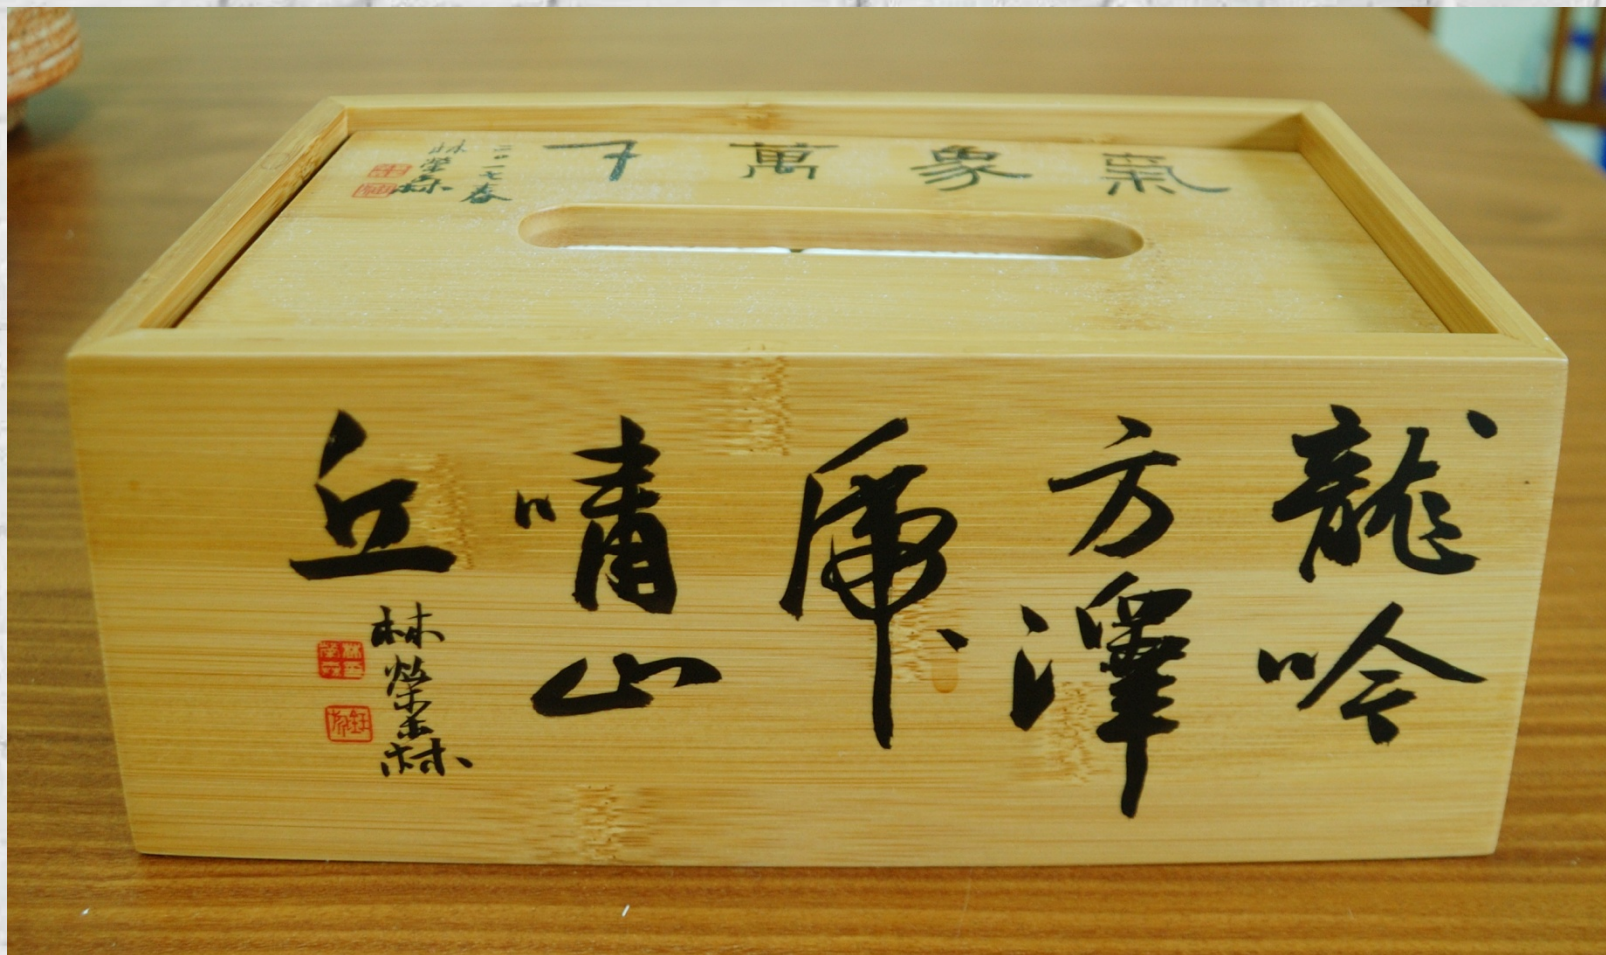 氣象萬千
二〇一七春
林榮森
龍吟
方澤
虎
嘯山
丘
林榮森